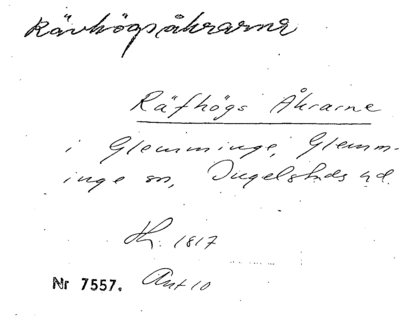 Rävhögsåkrarne
Räfhögs Åkrarne
i Glemminge, Glemm-
inge sn, Ingelstads hd.
1817
Nr 7557. Akt 10